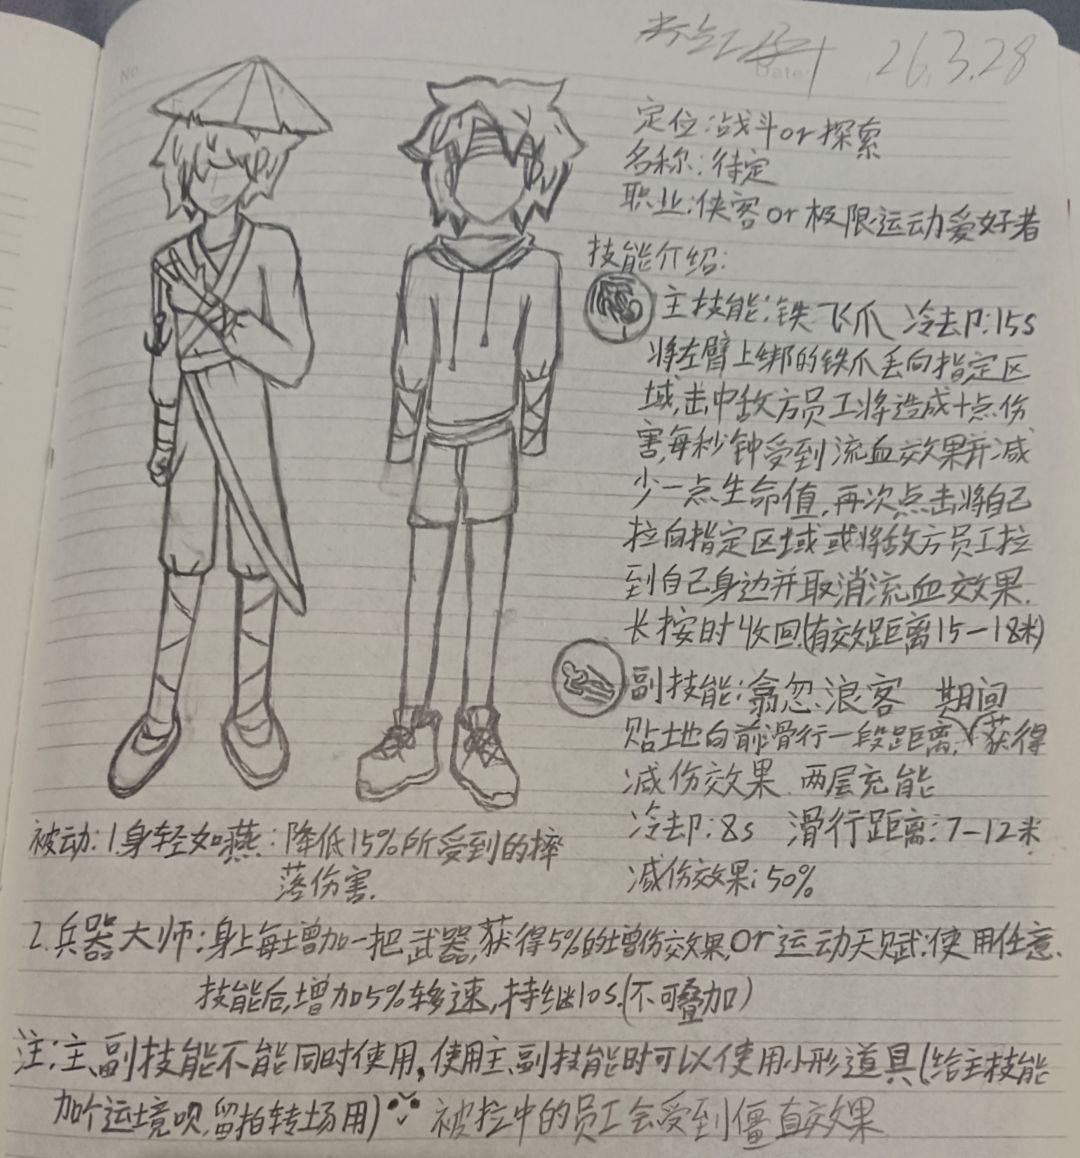 No.
Date
26.3.28
定位:战斗or探索
名称:待定
职业:侠客or极限运动爱好者
技能介绍:
主技能:铁飞爪 冷却:15s
将左臂上绑的铁爪丢向指定区
域,击中敌方员工将造成十点伤
害,每秒钟受到流血效果并减
少一点生命值,再次点击将自己
拉向指定区域或将敌方员工拉
到自己身边并取消流血效果.
长按时收回.(有效距离15-18米)
副技能:翕忽浪客 期间
贴地向前滑行一段距离,获得
减伤效果.两层充能
冷却:8s 滑行距离:7-12米
减伤效果:50%
被动:1身轻如燕:降低15%所受到的摔
落伤害.
2.兵器大师:身上每增加一把武器,获得5%的增伤效果,or运动天赋:使用任意
技能后,增加5%移速,持继10s.(不可叠加)
注:主、副技能不能同时使用,使用主、副技能时可以使用小形道具(给主技能
加个运境呗,留拍转场用)
被拉中的员工会受到僵直效果